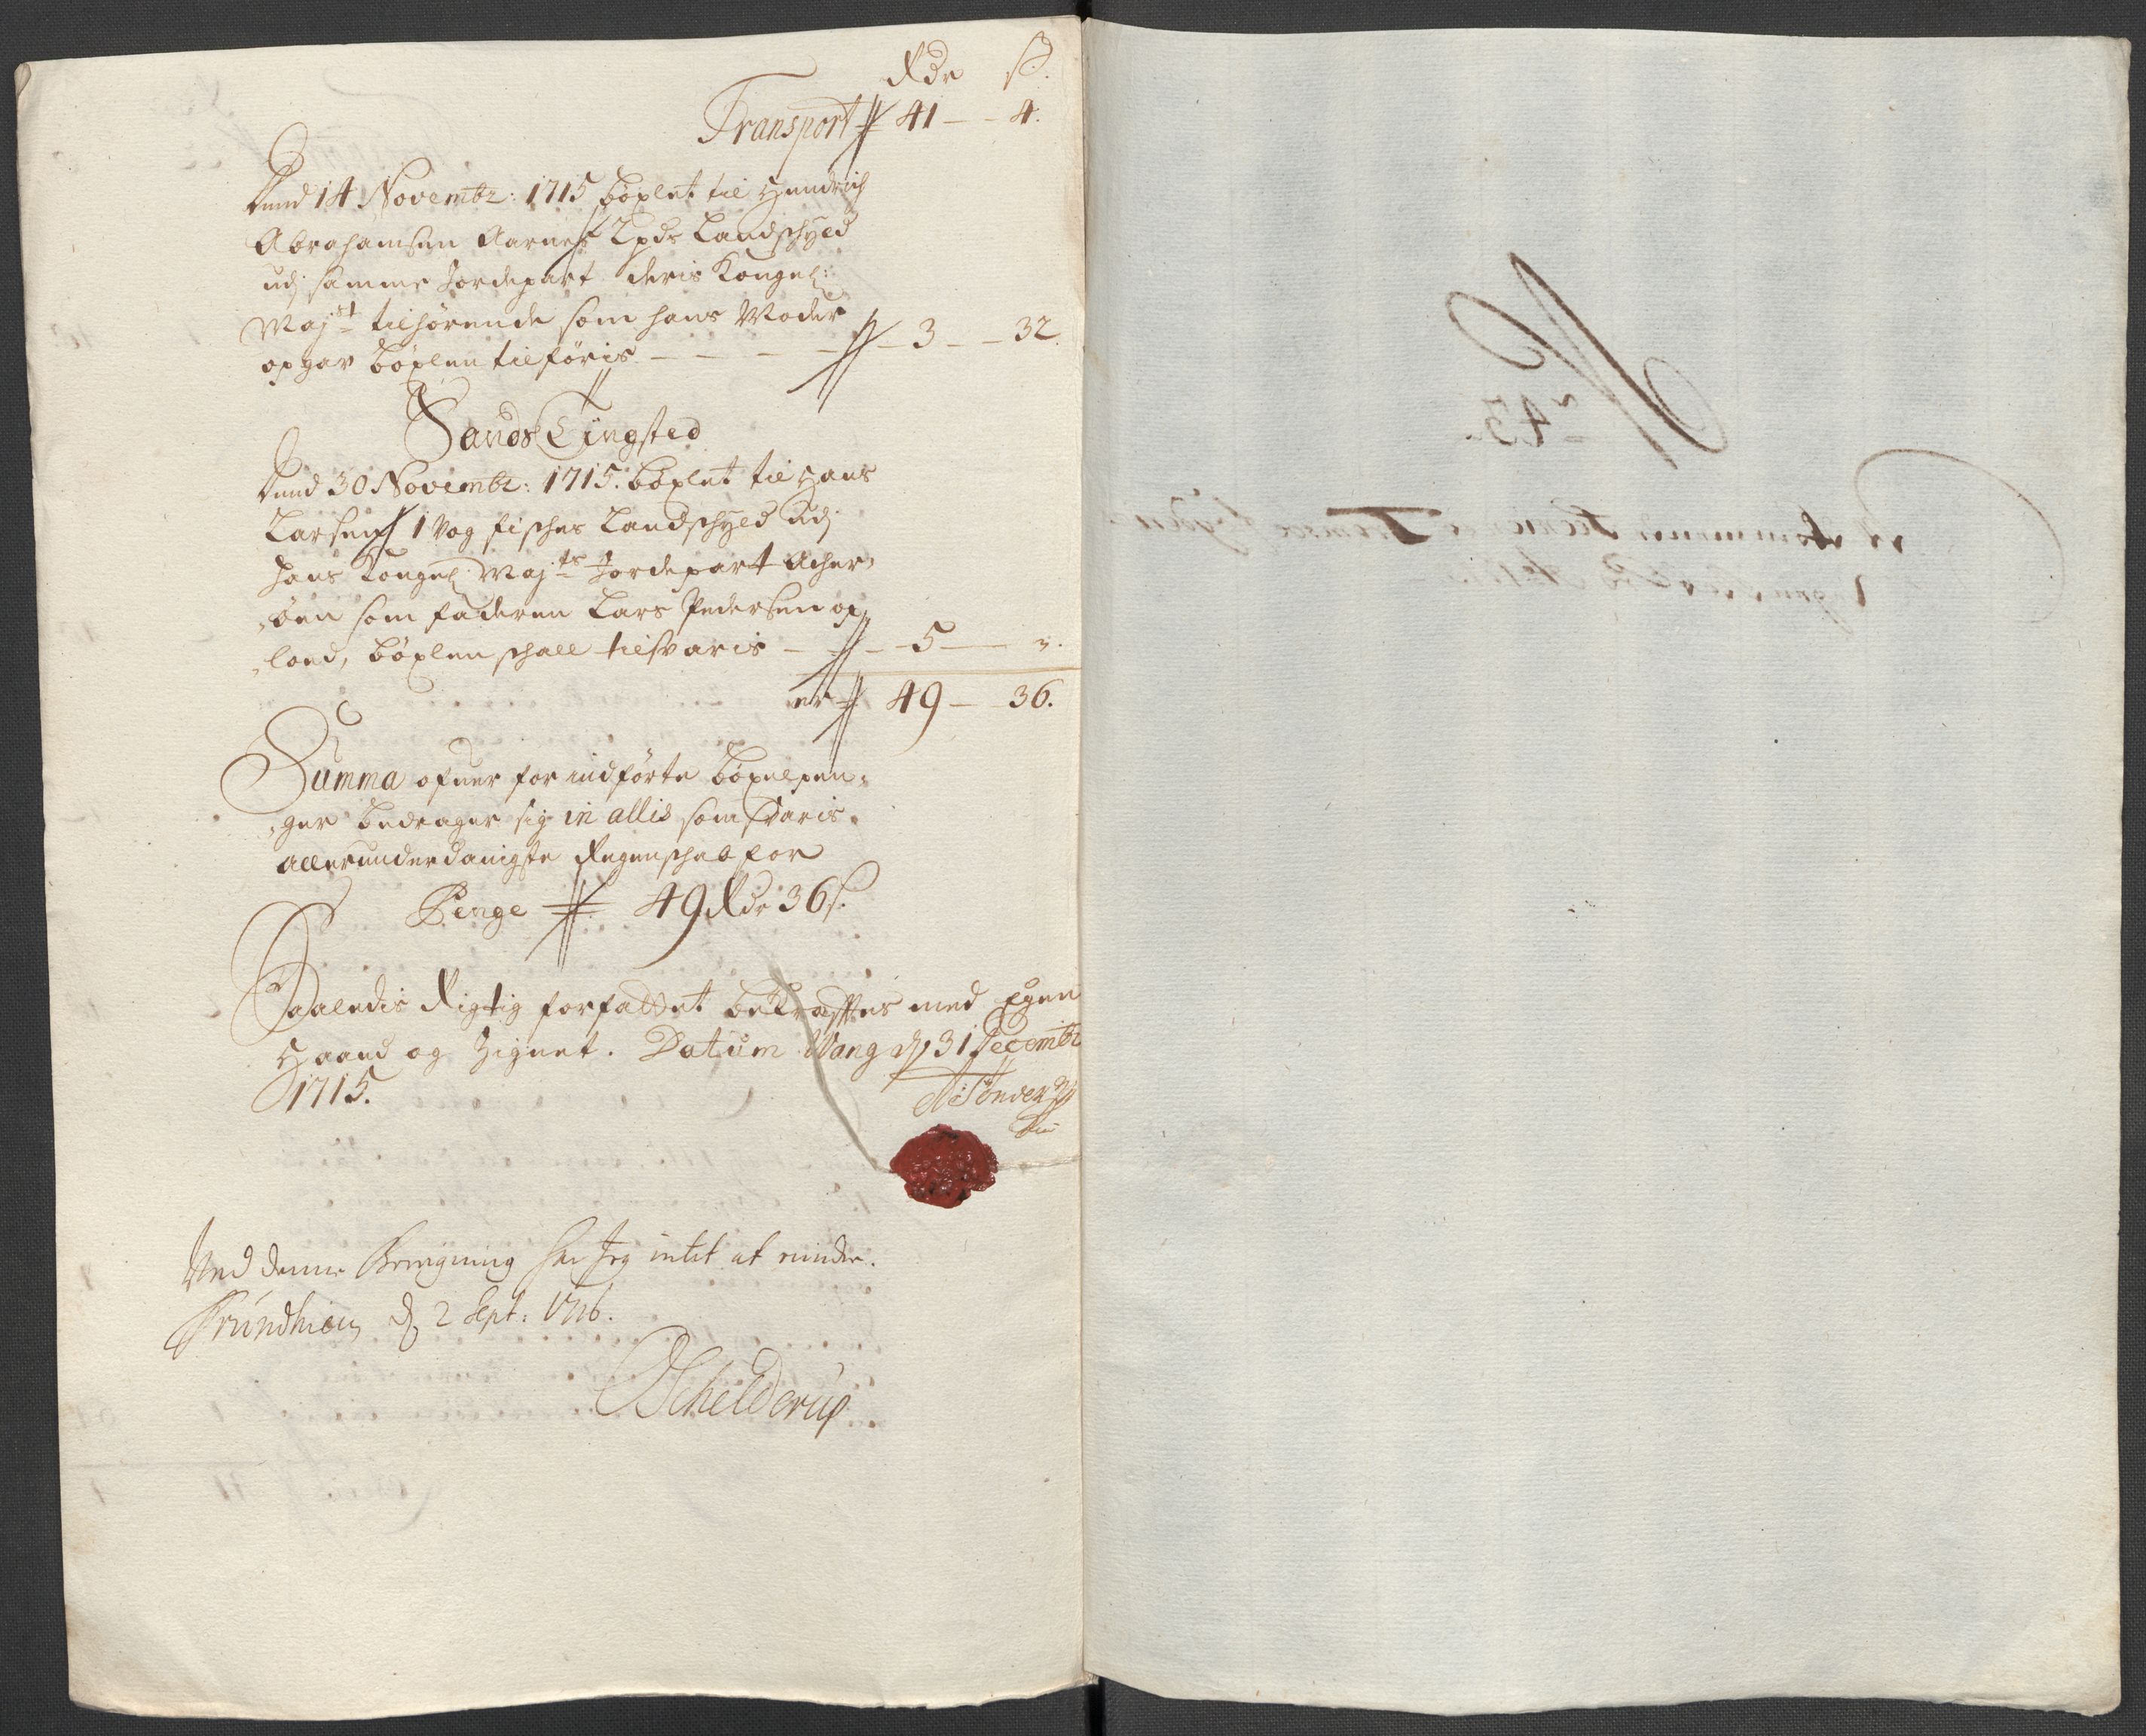 Rdr ß.
Transport 41 - - 4.
Dend 14 Novembr: 1715 böxlet til Hendrich
Abrahamsen Aarnes 2 pdr Landschyld
udj samme Jordepart deris Kongel:
Majst tilhørende som hans Moder
opgav böxlen tilføris - - - - 3 - - 32.
Sands Tingsted
Dend 30 Novembr: 1715. böxlet til Hans
Larsen 1 Vog fischer Landschyld udj
Hans Kongel: Majts Jordepart Acher-
öen som faderen Lars Pedersen op-
loed, böxlen schall tilsvaris - - 5 - ".
er 49 - 36.
Summa ofuer for indførte böxelpen-
ger bedrager sig in allis som svaris
allerunderdanigste Regenschab for
Penge 49 Rdr 36 ß.
Saaledis Rigtig forfattet bekræfftes med Egen
Haand og Zignet. Datum Wang d 31 Decembr
1715.
Tønder
Ved denne Beregning har Jeg intet at erindre.
Trundhiem d. 2 Sept: 1716.
Schelderup
No 43.